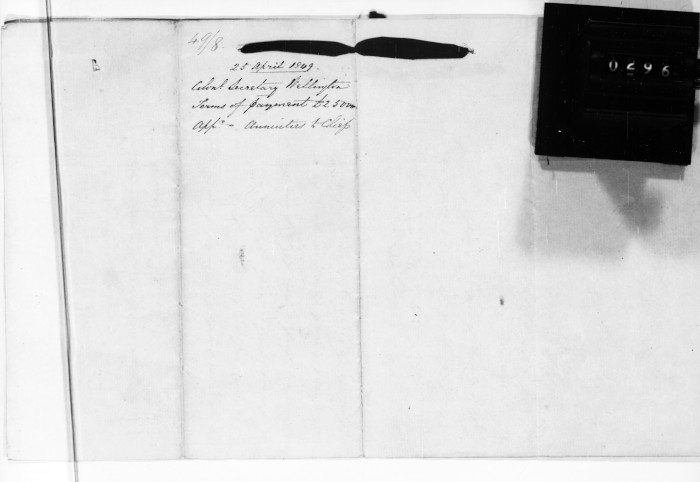 49/8.
0296
25 April 1849.
Colonl. Secretary Wellington
Terms of payment £2500
App.n - Annuities to Chiefs